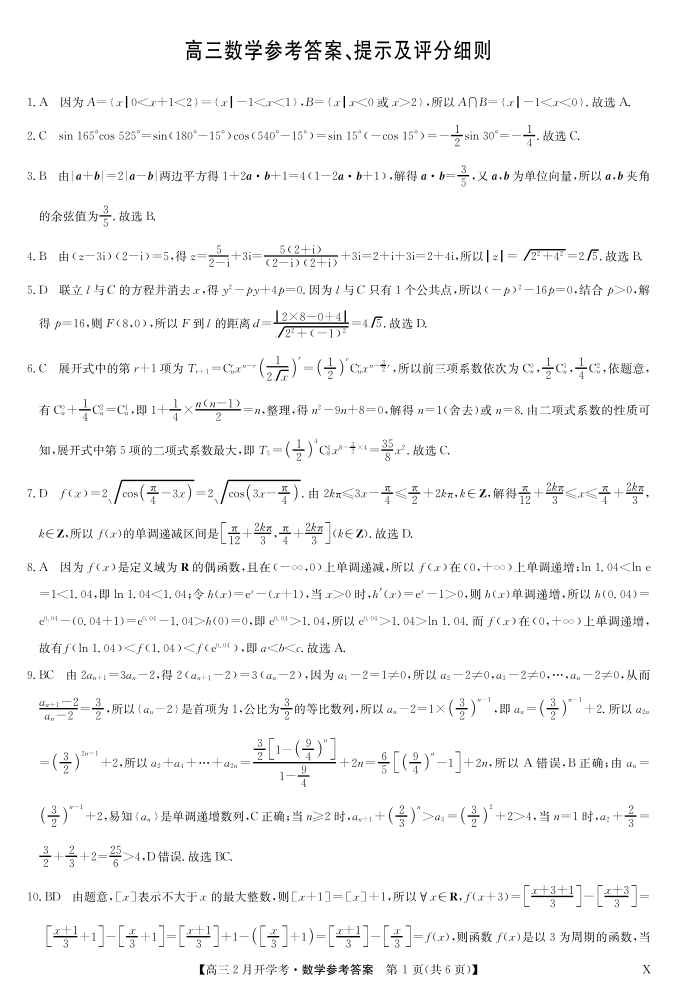 高三数学参考答案、提示及评分细则
1. A　因为 A={x|0<x+1<2}={x|-1<x<1},B={x|x<0 或 x>2},所以 A∩B={x|-1<x<0}. 故选 A.
2. C　sin 165°cos 525°=sin(180°-15°)cos(540°-15°)=sin 15°(-cos 15°)=-1/2 sin 30°=-1/4. 故选 C.
3. B　由|a+b|=2|a-b|两边平方得 1+2a·b+1=4(1-2a·b+1),解得 a·b=3/5,又 a,b 为单位向量,所以 a,b 夹角
的余弦值为 3/5. 故选 B.
4. B　由 (z-3i)(2-i)=5,得 z=5/(2-i)+3i=5(2+i)/((2-i)(2+i))+3i=2+i+3i=2+4i,所以|z|=√(2²+4²)=2√5. 故选 B.
5. D　联立 l 与 C 的方程并消去 x,得 y²-py+4p=0. 因为 l 与 C 只有 1 个公共点,所以(-p)²-16p=0,结合 p>0,解
得 p=16,则 F(8,0),所以 F 到 l 的距离 d=|2×8-0+4|/√(2²+(-1)²)=4√5. 故选 D.
6. C　展开式中的第 r+1 项为 T_{r+1}=C_n^r x^{n-r}(1/(2√x))^r=(1/2)^r C_n^r x^{n-(3/2)r},所以前三项系数依次为 C_n^0,1/2 C_n^1,1/4 C_n^2,依题意,
有 C_n^0+1/4 C_n^2=C_n^1,即 1+1/4×n(n-1)/2=n,整理,得 n²-9n+8=0,解得 n=1(舍去)或 n=8. 由二项式系数的性质可
知,展开式中第 5 项的二项式系数最大,即 T_5=(1/2)^4 C_8^4 x^{8-(3/2)×4}=35/8 x². 故选 C.
7. D　f(x)=2√(cos(π/4-3x))=2√(cos(3x-π/4)). 由 2kπ≤3x-π/4≤π/2+2kπ,k∈Z,解得 π/12+2kπ/3≤x≤π/4+2kπ/3,
k∈Z,所以 f(x)的单调递减区间是[π/12+2kπ/3,π/4+2kπ/3](k∈Z). 故选 D.
8. A　因为 f(x)是定义域为 R 的偶函数,且在(-∞,0)上单调递减,所以 f(x)在(0,+∞)上单调递增;ln 1.04<ln e
=1<1.04,即 ln 1.04<1.04;令 h(x)=e^x-(x+1),当 x>0 时,h′(x)=e^x-1>0,则 h(x)单调递增,所以 h(0.04)=
e^{0.04}-(0.04+1)=e^{0.04}-1.04>h(0)=0,即 e^{0.04}>1.04,所以 e^{0.04}>1.04>ln 1.04. 而 f(x)在(0,+∞)上单调递增,
故有 f(ln 1.04)<f(1.04)<f(e^{0.04}),即 a<b<c. 故选 A.
9. BC　由 2a_{n+1}=3a_n-2,得 2(a_{n+1}-2)=3(a_n-2),因为 a_1-2=1≠0,所以 a_2-2≠0,a_3-2≠0,…,a_n-2≠0,从而
(a_{n+1}-2)/(a_n-2)=3/2,所以{a_n-2}是首项为 1,公比为 3/2 的等比数列,所以 a_n-2=1×(3/2)^{n-1},即 a_n=(3/2)^{n-1}+2. 所以 a_{2n}
=(3/2)^{2n-1}+2,所以 a_2+a_4+…+a_{2n}=(3/2[1-(9/4)^n])/(1-9/4)+2n=6/5[(9/4)^n-1]+2n,所以 A 错误,B 正确;由 a_n=
(3/2)^{n-1}+2,易知{a_n}是单调递增数列,C 正确;当 n≥2 时,a_{n+1}+(2/3)^n>a_3=(3/2)^2+2>4,当 n=1 时,a_2+2/3=
3/2+2/3+2=25/6>4,D 错误. 故选 BC.
10. BD　由题意,[x]表示不大于 x 的最大整数,则[x+1]=[x]+1,所以∀x∈R,f(x+3)=[(x+3+1)/3]-[(x+3)/3]=
[(x+1)/3+1]-[x/3+1]=[(x+1)/3]+1-([x/3]+1)=[(x+1)/3]-[x/3]=f(x),则函数 f(x)是以 3 为周期的函数,当
【高三 2 月开学考·数学参考答案　第 1 页(共 6 页)】　X